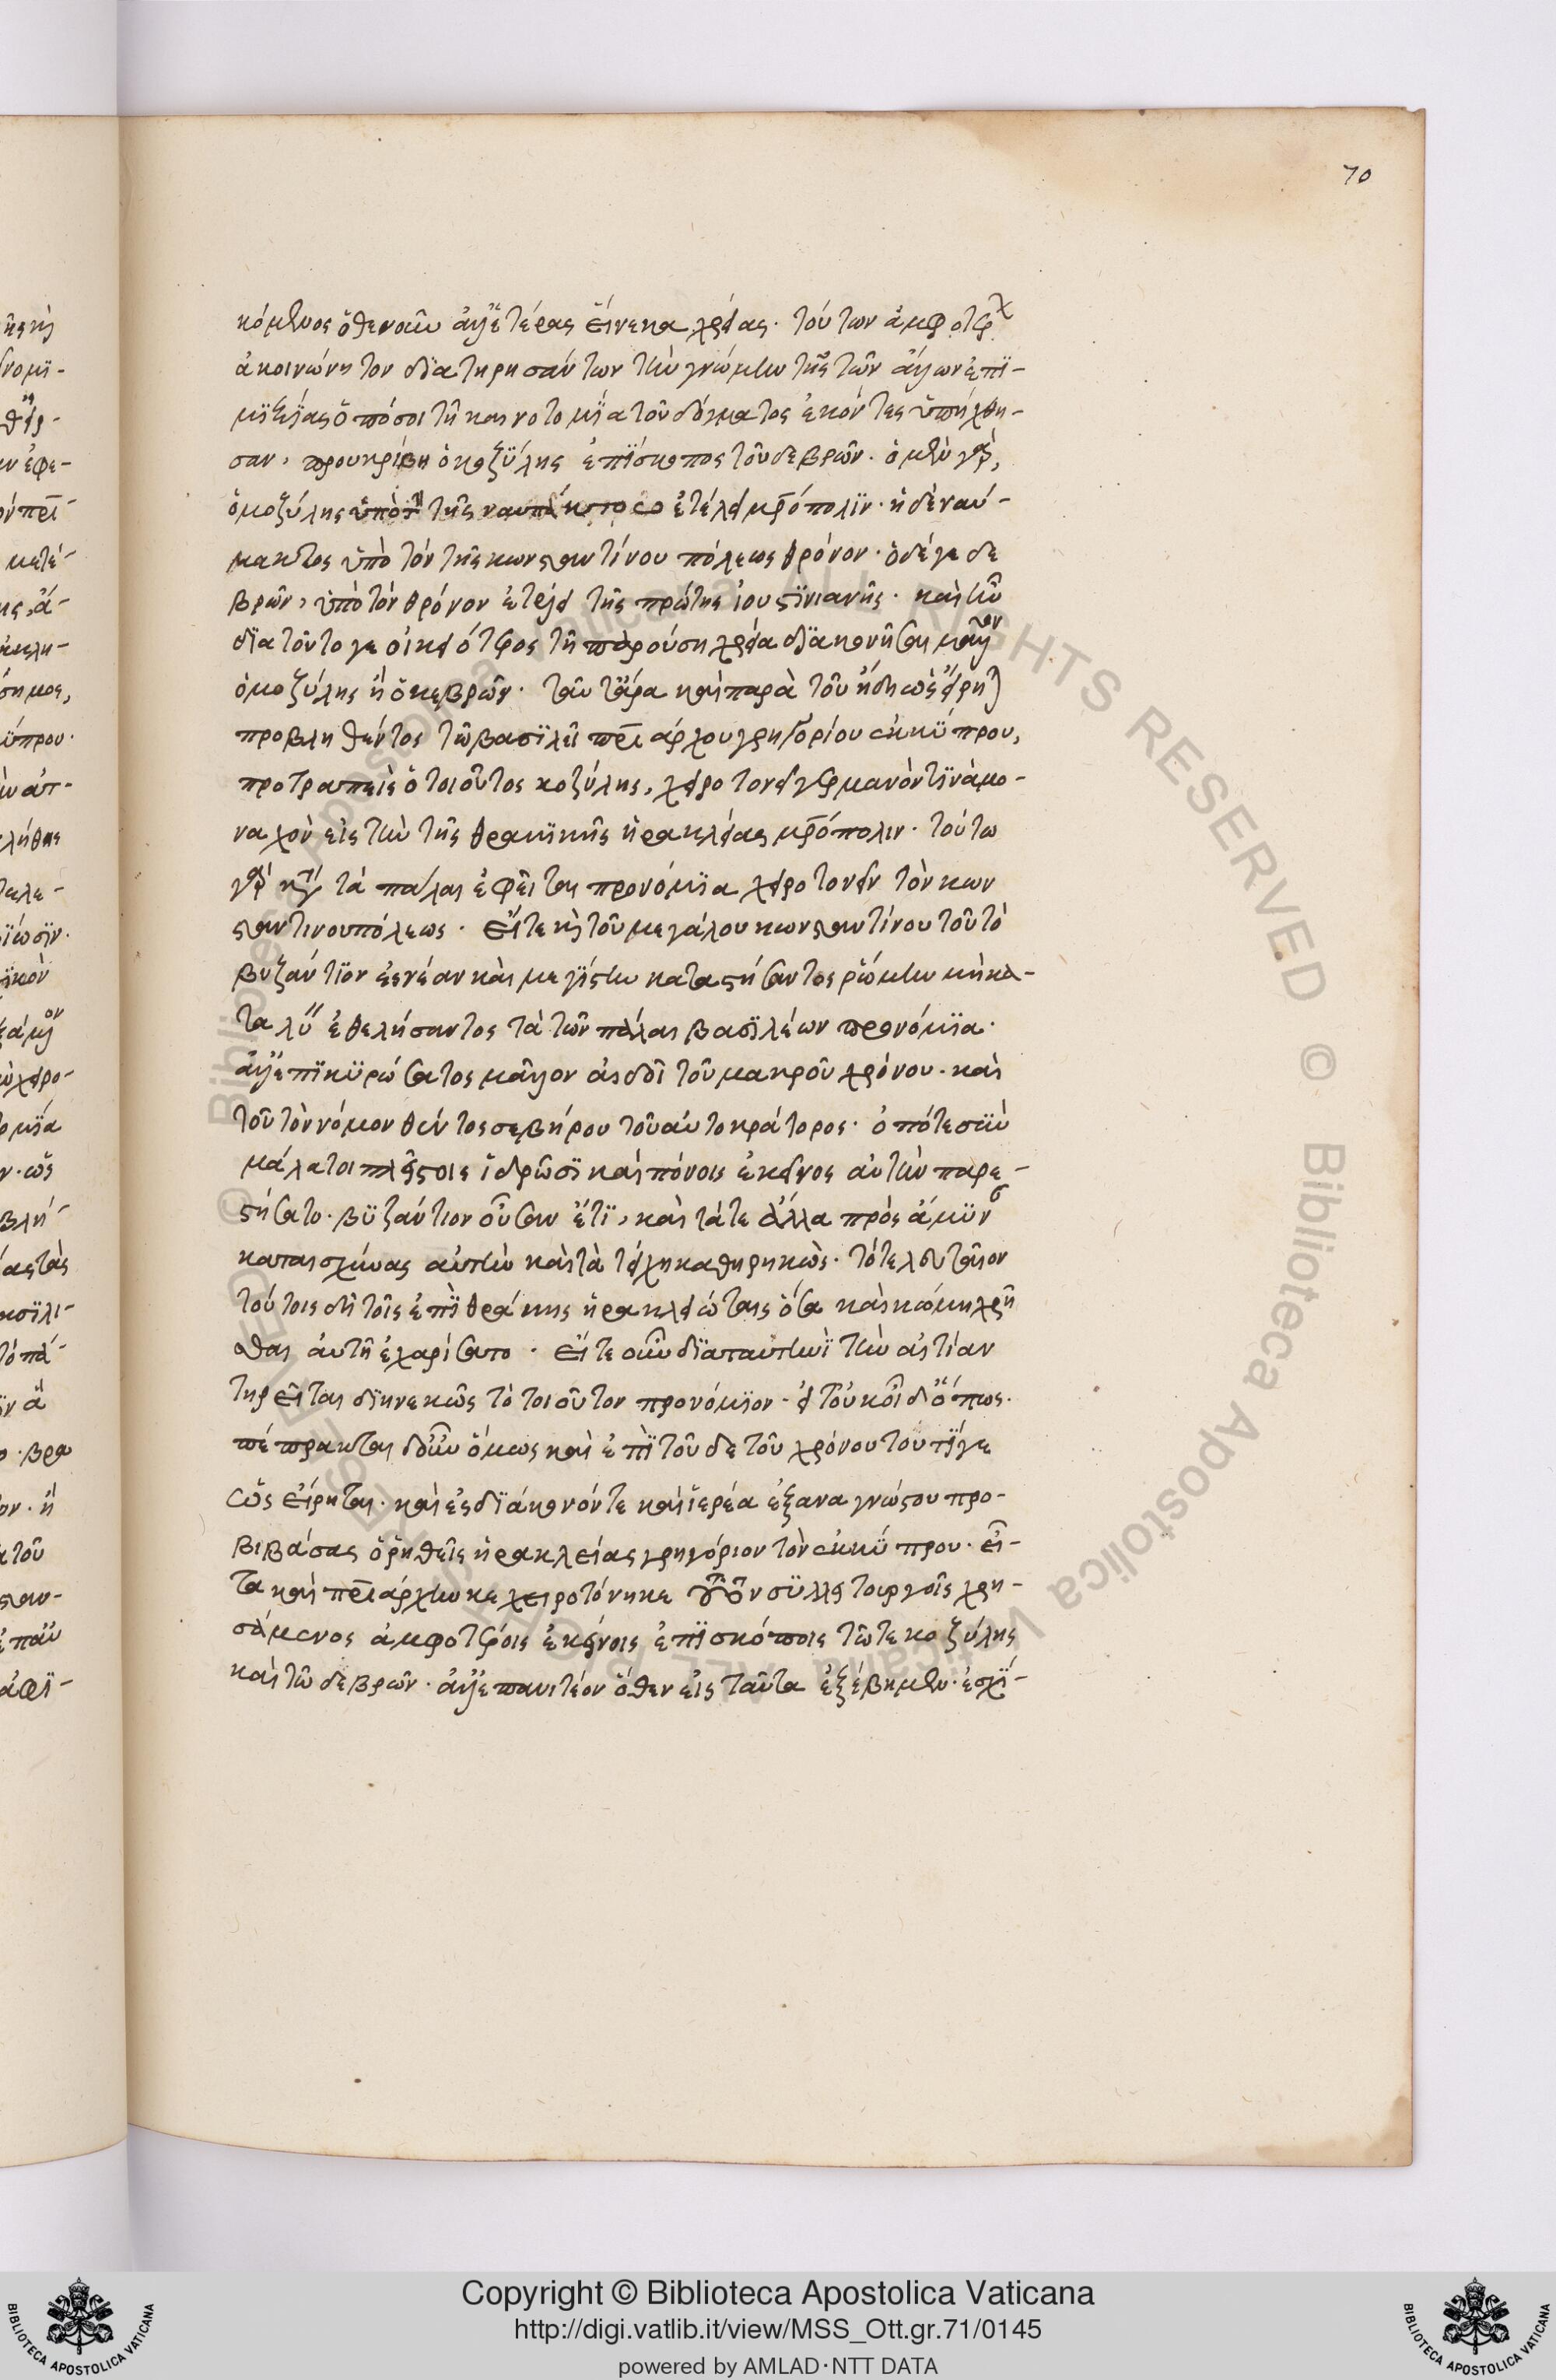 70
κόμενος ὅθεν οὖν ἀλλ' ἑτέρας εἵνεκα χρείας· τούτων ἀμφοτέρων
ἀκοινώνητον διατηρησάντων τὴν γνώμην τῆς τῶν ἄλλων ἐπι-
μιξίας ὁπόσοι τῆ καινοτομία τοῦ δόγματος ἑκόντες ὑπήχθη-
σαν, προυκρίθη ὁ κοζύλης ἐπίσκοπος τοῦ δεβρῶν. ὁ μὲν γὰρ,
ὁ κοζύλης ὑπὸ τὴν τῆς ναυπάκτου ἐτέλει μητρόπολιν· ἡ δὲ ναύ-
πακτος ὑπὸ τὸν τῆς κωνσταντίνου πόλεως θρόνον· ὁ δέ γε δε
βρῶν, ὑπὸ τὸν θρόνον ἐτέλει τῆς πρώτης ἰουστινιανῆς. καὶ ἦν
διὰ τοῦτό γε οἰκειότερος τῆ παρούση χρεία διακονῆσαι μᾶλλον
ὁ κοζύλης ἢ ὁ δεβρῶν. ταῦτ' ἄρα καὶ παρὰ τοῦ ἤδη ὡς εἴρηται
προβληθέντος τῶ βασιλεῖ πατριάρχου γρηγορίου ἐκ κύπρου,
προτραπεὶς ὁ τοιοῦτος κοζύλης, χειροτονεῖ γερμανόν τινὰ μο-
ναχὸν εἰς τὴν τῆς θρακικῆς ἡρακλείας μητρόπολιν. τούτω
γὰρ κατὰ τὰ πάλαι ἐφεῖται προνόμια χειροτονεῖν τὸν κων
σταντινουπόλεως. εἴτε καὶ τοῦ μεγάλου κωνσταντίνου τοῦ τὸ
βυζάντιον ἐς νέαν καὶ μεγίστην καταστήσαντος ῥώμην μὴ κα-
ταλύειν ἐθελήσαντος τὰ τῶν πάλαι βασιλέων προνόμια·
ἀλλ' ἐπικυρώσαντος μᾶλλον αἰδοῖ τοῦ μακροῦ χρόνου. καὶ
τοῦ τὸν νόμον θέντος σεβήρου τοῦ αὐτοκράτορος· ὁπότε σὺν
μάλα τοι πλείστοις ἱδρῶσι καὶ πόνοις ἐκεῖνος αὐτὴν παρε-
στήσατο. βυζάντιον οὖσαν ἔτι, καὶ τά τε ἄλλα πρὸς ἄμυναν
καταισχύνας αὐτὴν καὶ τὰ τείχη καθηρηκὼς. τὸ τελευταῖον
τούτοις δὴ τοῖς ἐπὶ θράκης ἡρακλειώταις ὅσα καὶ κώμη χρῆ
σθαι αὐτῆ ἐχαρίσατο. εἴτε οὖν διὰ ταυτηνὶ τὴν αἰτίαν
τηρεῖται διηνεκῶς τὸ τοιοῦτον προνόμιον· εἴτ' οὐκ οἶδ' ὅπως.
πέπρακται δ' οὖν ὅμως καὶ ἐπὶ τοῦδε τοῦ χρόνου τουτί γε
ὡς εἴρηται. καὶ ἐς διάκονόν τε καὶ ἱερέα ἐξ ἀναγνώστου προ-
βιβάσας ὁ ῥηθεὶς ἡρακλείας γρηγόριον τὸν ἐκ κύπρου. εἶ-
τα καὶ πατριάρχην κεχειροτόνηκε συλλειτουργοῖς χρη-
σάμενος ἀμφοτέροις ἐκείνοις ἐπισκόποις τῶ τε κοζύλης
καὶ τῶ δεβρῶν. ἀλλ' ἐπανιτέον ὅθεν εἰς ταῦτα ἐξέβημεν. ἐσχί-
Copyright © Biblioteca Apostolica Vaticana
http://digi.vatlib.it/view/MSS_Ott.gr.71/0145
powered by AMLAD·NTT DATA